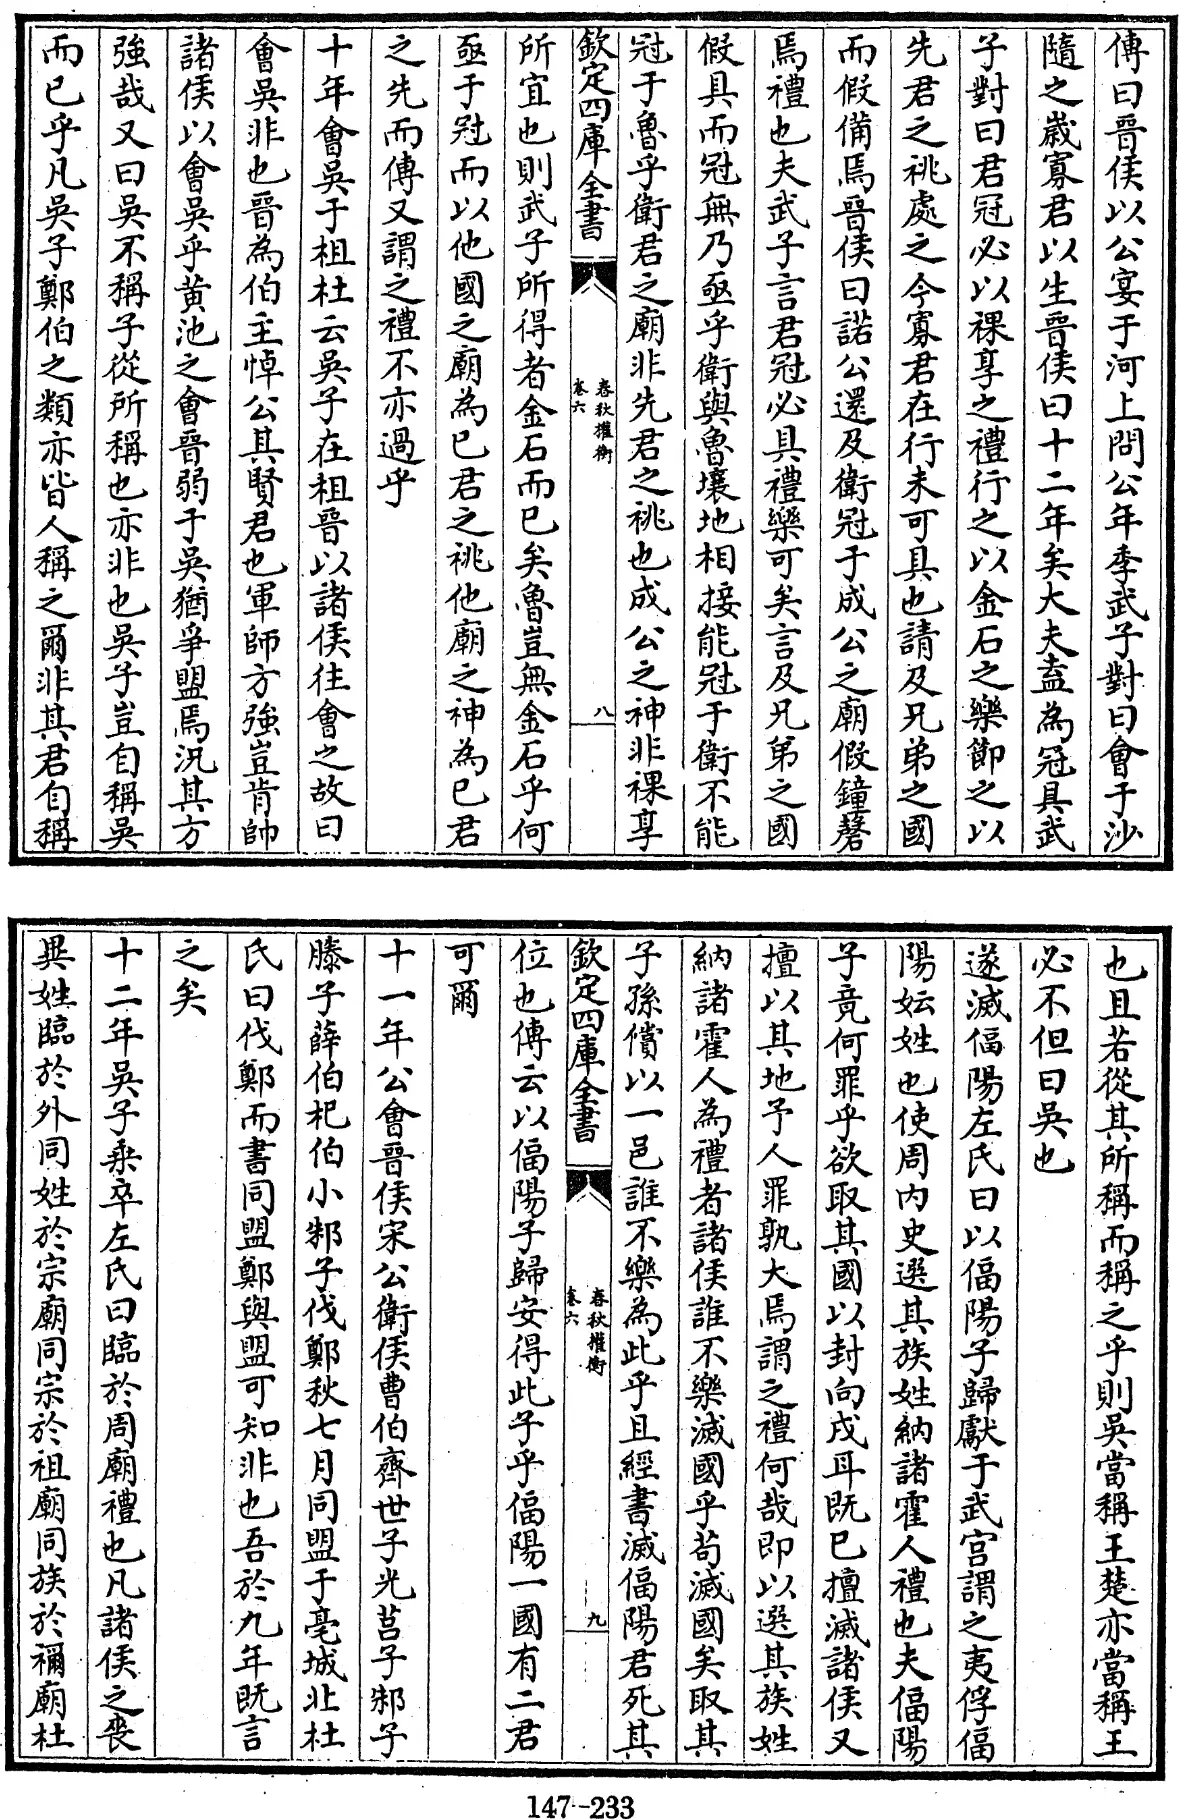 傳曰晉侯以公宴于河上問公年季武子對曰會于沙
隨之歲寡君以生晉侯曰十二年矣大夫盍為冠具武
子對曰君冠必以祼享之禮行之以金石之樂節之以
先君之祧處之今寡君在行未可具也請及兄弟之國
而假備焉晉侯曰諾公還及衛冠于成公之廟假鐘磬
焉禮也夫武子言君冠必具禮樂可矣言及兄弟之國
假具而冠無乃亟乎衛與魯壤地相接能冠于衛不能
冠于魯乎衛君之廟非先君之祧也成公之神非祼享
欽定四庫全書
春秋權衡
卷六
八
所宜也則武子所得者金石而已矣魯豈無金石乎何
亟于冠而以他國之廟為已君之祧他廟之神為已君
之先而傳又謂之禮不亦過乎
十年會吳于柤杜云吳子在柤晉以諸侯往會之故曰
會吳非也晉為伯主悼公其賢君也軍師方強豈肯帥
諸侯以會吳乎黃池之會晉弱于吳猶爭盟焉況其方
強哉又曰吳不稱子從所稱也亦非也吳子豈自稱吳
而已乎凡吳子鄭伯之類亦皆人稱之爾非其君自稱
也且若從其所稱而稱之乎則吳當稱王楚亦當稱王
必不但曰吳也
遂滅偪陽左氏曰以偪陽子歸獻于武宮謂之夷俘偪
陽妘姓也使周內史選其族姓納諸霍人禮也夫偪陽
子竟何罪乎欲取其國以封向戌耳既已擅滅諸侯又
擅以其地予人罪孰大焉謂之禮何哉即以選其族姓
納諸霍人為禮者諸侯誰不樂滅國乎苟滅國矣取其
子孫償以一邑誰不樂為此乎且經書滅偪陽君死其
欽定四庫全書
春秋權衡
卷六
九
位也傳云以偪陽子歸安得此子乎偪陽一國有二君
可爾
十一年公會晉侯宋公衛侯曹伯齊世子光莒子邾子
滕子薛伯杞伯小邾子伐鄭秋七月同盟于亳城北杜
氏曰伐鄭而書同盟鄭與盟可知非也吾於九年既言
之矣
十二年吳子乘卒左氏曰臨於周廟禮也凡諸侯之喪
異姓臨於外同姓於宗廟同宗於祖廟同族於禰廟杜
147-233